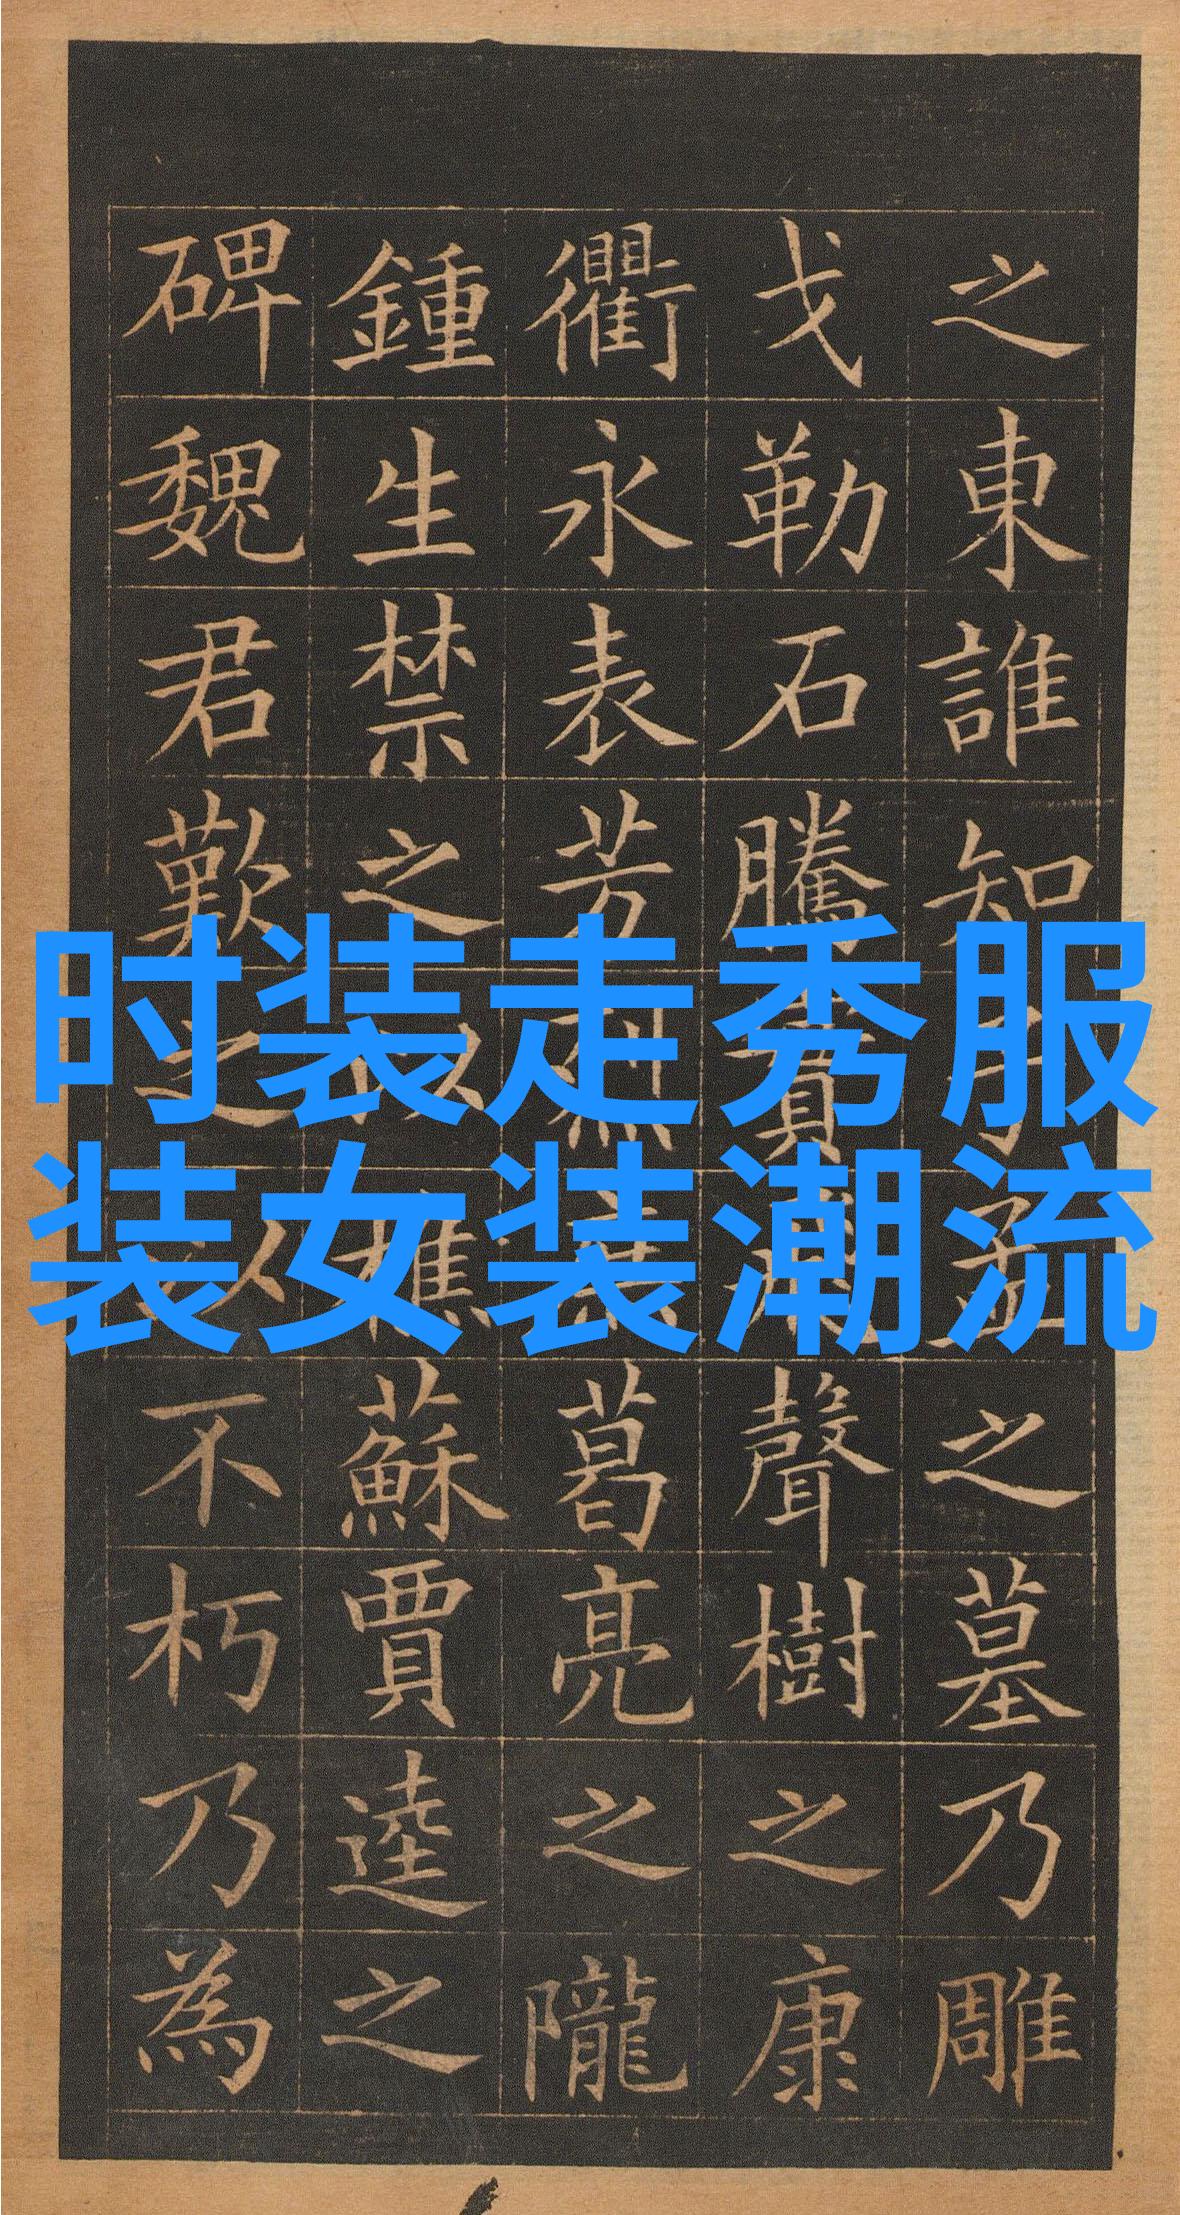 之東誰知子孟之墓乃雕
戈勒石騰實聲樹之康
衢永表芳烈葛亮之隴
鍾生禁之樵蘇賈逵之
碑魏君歎之不朽乃為
时装走秀服
装女装潮流